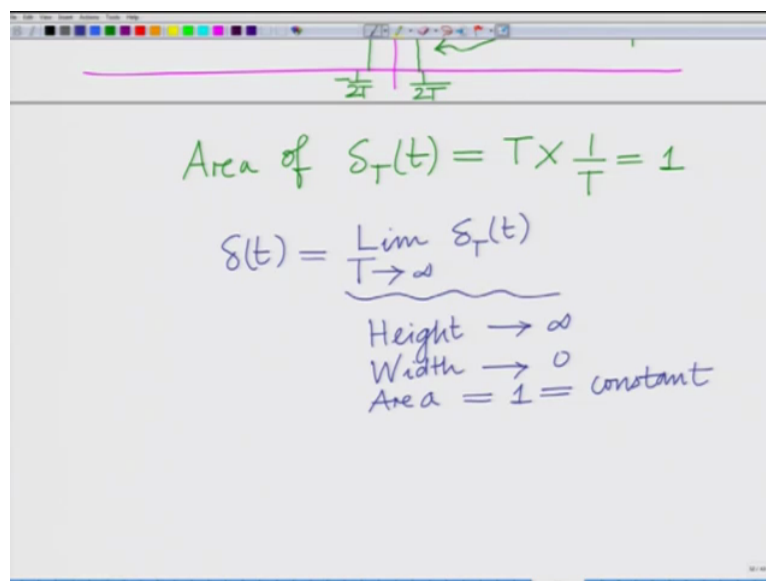 -1/2T 1/2T
Area of δ_T(t) = T × 1/T = 1
δ(t) = Lim δ_T(t)
T → ∞
Height → ∞
Width → 0
Area = 1 = constant